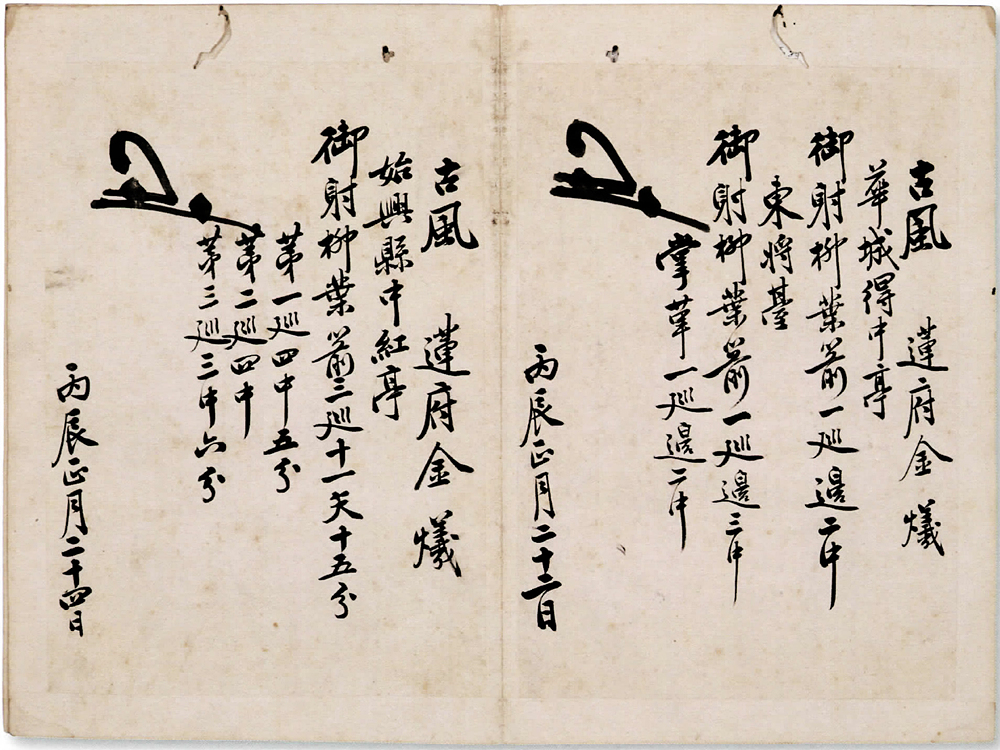 古風 蓮府金爔
華城得中亭
御射柳葉箭一巡邊二中
東將臺
御射柳葉箭一巡邊三中
掌革一巡邊二中
丙辰正月二十二日
古風 蓮府金爔
始興縣中紅亭
御射柳葉箭三巡十一矢十五分
苐一巡四中五分
苐二巡四中
苐三巡三中六分
丙辰正月二十四日